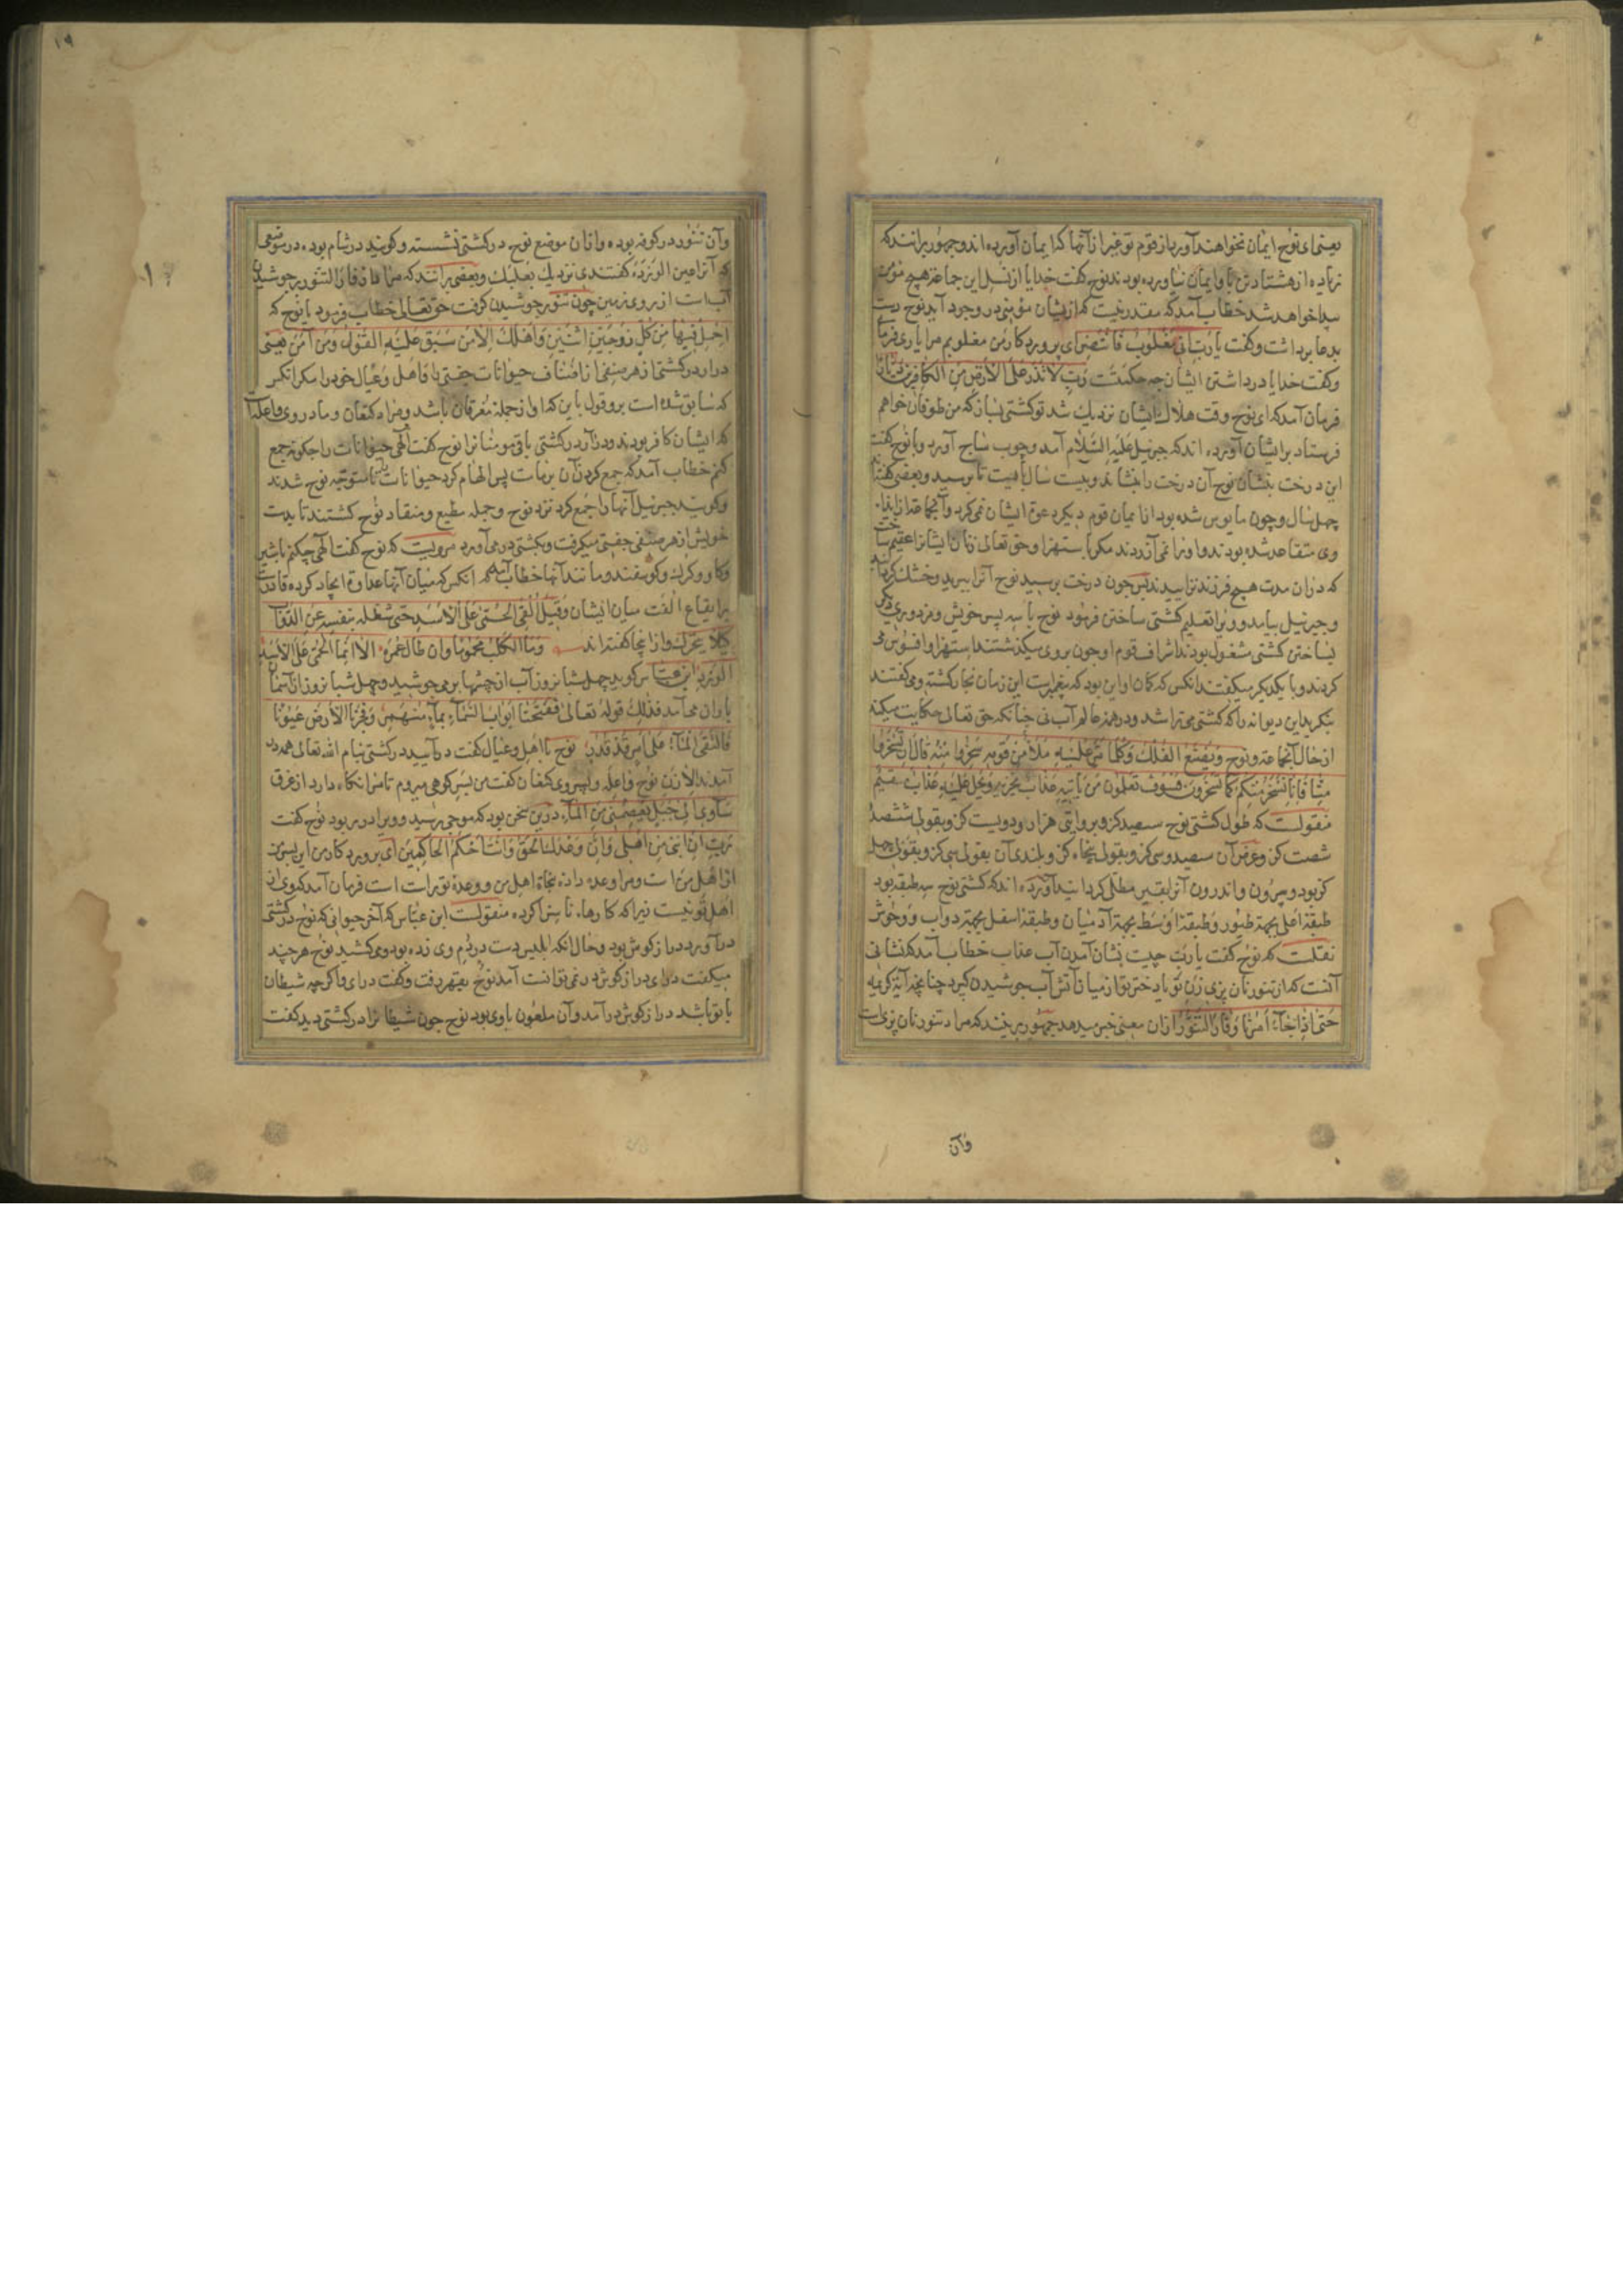 یعنی ای نوح ایمان نخواهند آورد از قوم تو غیر از آنها که ایمان آورده اند و جمهور برانند که
زیاده از هشتاد تن باو ایمان نیاورده بودند نوح گفت خدایا از نسل این جماعة هیچ مؤمن
پیدا خواهد شد خطاب آمد که مقدر نیست که از ایشان مؤمنی در وجود آید نوح دست
بدعا برداشت و گفت یا رب انی مغلوب فانتصر ای پروردگار من مغلوبم مرا یاری فرما
و گفت خدایا در داشتن ایشان چه حکمتست رب لا تذر علی الارض من الکافرین دیارا
فرمان آمد که ای نوح وقت هلاک ایشان نزدیک شد تو کشتی بساز که من طوفان خواهم
فرستاد بر ایشان آورده اند که جبرئیل علیه السلام آمد و چوب ساج آورد و با نوح گفت
این درخت بنشان نوح آن درخت را بنشاند و بیست سال بایست تا برسید و بعضی گفته اند
چهل سال و چون مایوس شده بود از ایمان قوم دیگر دعوة ایشان نمی کرد و آنجماعة از ایذاء
وی متقاعد شده بودند و او را نمی آزردند مگر باستهزا و حق تعالی زنان ایشانرا عقیم ساخت
که در آن مدت هیچ فرزند نزاییدند پس چون درخت برسید نوح آنرا ببرید و خشک کردانید
و جبرئیل بیامد و ویرا تعلیم کشتی ساختن فرمود نوح با سه پسر خویش و مزدوری دیگر
بساختن کشتی مشغول بودند اشراف قوم او چون بروی میگذشتند استهزا و افسوس می
کردند و با یکدیگر میگفتند انکس که کمان او این بود که پیغمبرست این زمان نجار گشته و می گفتند
بنگرید این دیوانه را که کشتی می تراشد و در همه عالم آب نی چنانکه حق تعالی حکایت میکند
از حال آنجماعة و نوح و یصنع الفلک و کلما مر علیه ملأ من قومه سخروا منه قال ان تسخروا
منا فانا نسخر منکم کما تسخرون فسوف تعلمون من یأتیه عذاب یخزیه و یحل علیه عذاب مقیم
منقولست که طول کشتی نوح سیصد گز و بروایتی هزار و دویست گز و بقولی ششصد
شصت گز و عرض آن سیصد و سی گز و بقولی پنجاه گز و بلندی آن بقولی سی گز و بقولی چهل
گز بود و بیرون و اندرون آنرا بقیر مطلی کردانید آورده اند که کشتی نوح سه طبقه بود
طبقهٔ اعلی بجهة طیور و طبقهٔ اوسط بجهة آدمیان و طبقهٔ اسفل بجهة دواب و وحوش
نقلست که نوح گفت یا رب چیست نشان آمدن آب عذاب خطاب آمد که نشانی
آنست که از تنور نان پزی زن تو یا دختر تو از میان آتش آب جوشیدن گیرد چنانچه آیة کریمه
حتی اذا جاء امرنا و فار التنور از ان معنی خبر میدهد جمهور برینند که مراد تنور نان پزی است
وآن
وآن تنور در کوفه بوده و از آن موضع نوح در کشتی نشسته و گویند در شام بوده در موضعی
که آنرا عین الورده گفتندی نزدیک بعلبک و بعضی برانند که مراد از فار التنور بر جوشیدن
آب است از روی زمین چون تنور جوشیدن گرفت حق تعالی خطاب فرمود با نوح که
احمل فیها من کل زوجین اثنین و اهلک الا من سبق علیه القول و من آمن یعنی
در آر در کشتی از هر صنفی از اصناف حیوانات جفتی با و اهل و عیال خود را مگر انکس
که سابق شده است برو قول باین که او از جمله مغرقان باشد و مراد کنعان و مادر وی واعله
که ایشان کافر بودند و در آر در کشتی باقی مومنانرا نوح گفت الهی حیوانات را چگونه جمع
کنم خطاب آمد که جمع کردن آن بر ماست پس الهام کرد حیوانات را تا متوجه نوح شدند
و گویند جبرئیل آنها را جمع کرد نزد نوح و جمله مطیع و منقاد نوح گشتند تا بدست
خویش از هر صنفی جفتی میگرفت و بکشتی در می آورد مرویست که نوح گفت الهی چکنم با شیر
و گاو و گرگ و گوسفند و مانند آنها خطاب آمد که انکس که میان آنها عداوة ایجاد کرده قادرست
بر ایقاع الفت میان ایشان و قیل القی الحمی علی الاسد حتی شغله بنفسه عن الدواب
کیلا یتحرک و از اینجا گفته اند وما الکلب محموما وان طال عمره الا انما الحمی علی الاسد
الورد ابن عباس گوید چهل شبانروز آب از چشمها بر می جوشید و چهل شبانروز از آسمان
باران می آمد فذلک قوله تعالی ففتحنا ابواب السماء بماء منهمر و فجرنا الارض عیونا
فالتقی الماء علی امر قد قدر نوح با اهل و عیال گفت درآیید در کشتی بنام الله تعالی همه در
آمدند الا زن نوح واعله و پسر وی کنعان گفت من بسر کوهی میروم تا مرا نکاه دارد از غرق
سآوی الی جبل یعصمنی من الماء درین سخن بود که موجی رسید و ویرا در ربود نوح گفت
رب ان ابنی من اهلی و ان وعدک الحق و انت احکم الحاکمین ای پروردگار من این پسر من
از اهل من است و مرا وعده داده نجاة اهل من و وعدهٔ تو راست است فرمان آمد که وی از
اهل تو نیست زیرا که کارهاء ناسزا کرده منقولست ابن عباس که آخر حیوانی که نوح در کشتی
در آورد دراز گوش بود و حال انکه ابلیس دست در دم وی زده بود و می کشید نوح هر چند
میگفت در ای دراز گوش در نمی توانست آمد نوح بقهر رفت و گفت در ای و اگر چه شیطان
با تو باشد دراز گوش در آمد و آن ملعون با وی بود نوح چون شیطانرا در کشتی دید گفت